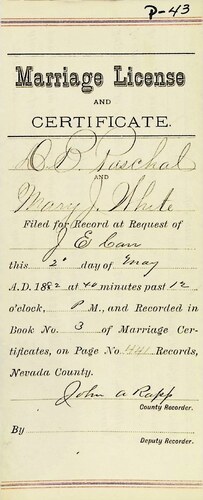 P-43
Marriage License
AND
CERTIFICATE.
D. B. Paschal
AND
Mary J. White
Filed for Record at Request of
J E Carr
this 2d day of May
A.D. 1882 at 40 minutes past 12
o'clock, P M., and Recorded in
Book No. 3 of Marriage Cer-
tificates, on Page No 441 Records,
Nevada County.
John A Rapp
County Recorder.
By
Deputy Recorder.